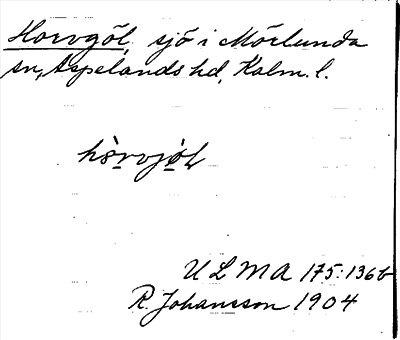 Horvgöl, sjö i Mörlunda
sn, Aspelands hd, Kalm. l.
hòrvjọ̀l
ULMA 175:136b
R. Johansson 1904